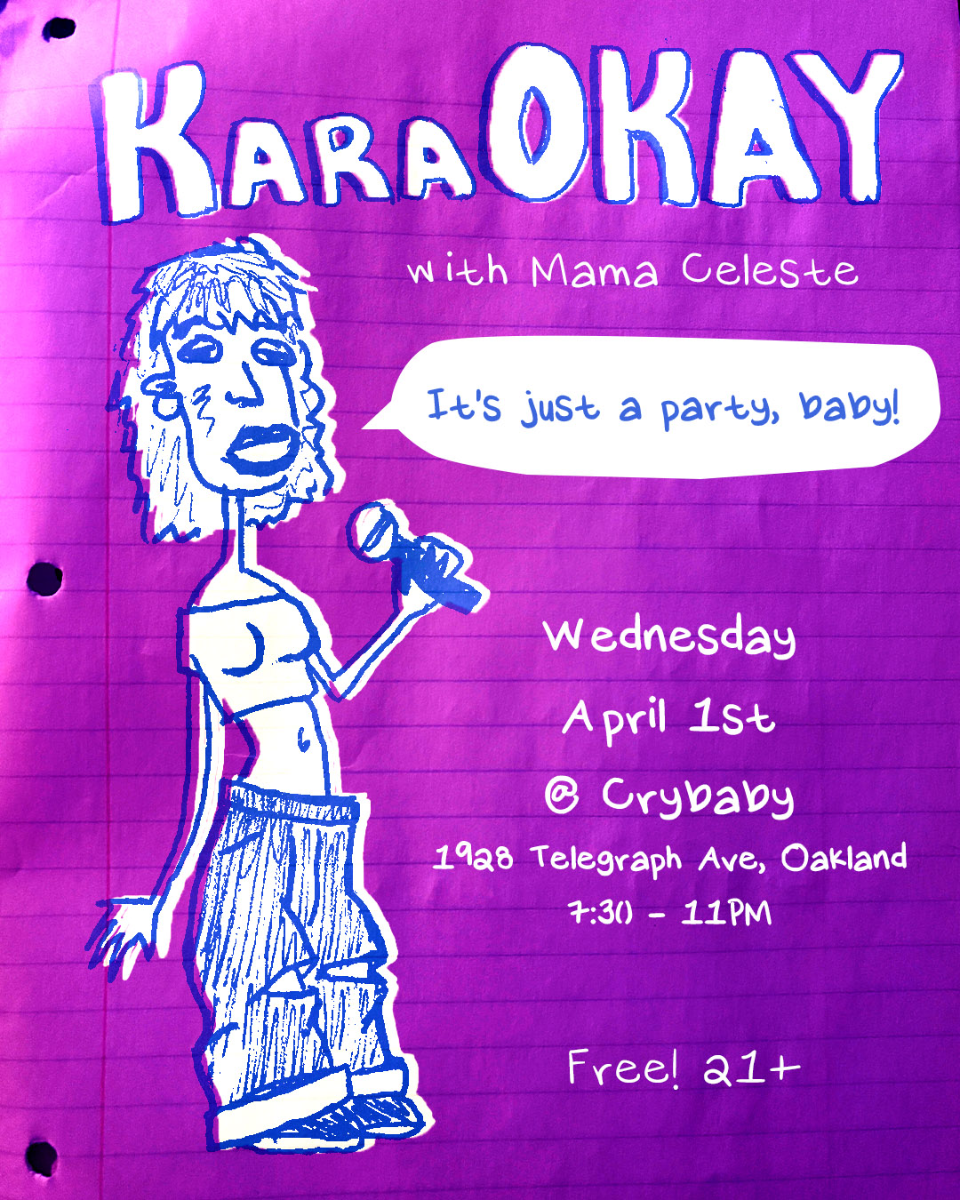 KARAOKAY
with Mama Celeste
It's just a party, baby!
Wednesday
April 1st
@ Crybaby
1928 Telegraph Ave, Oakland
7:30 - 11PM
Free! 21+